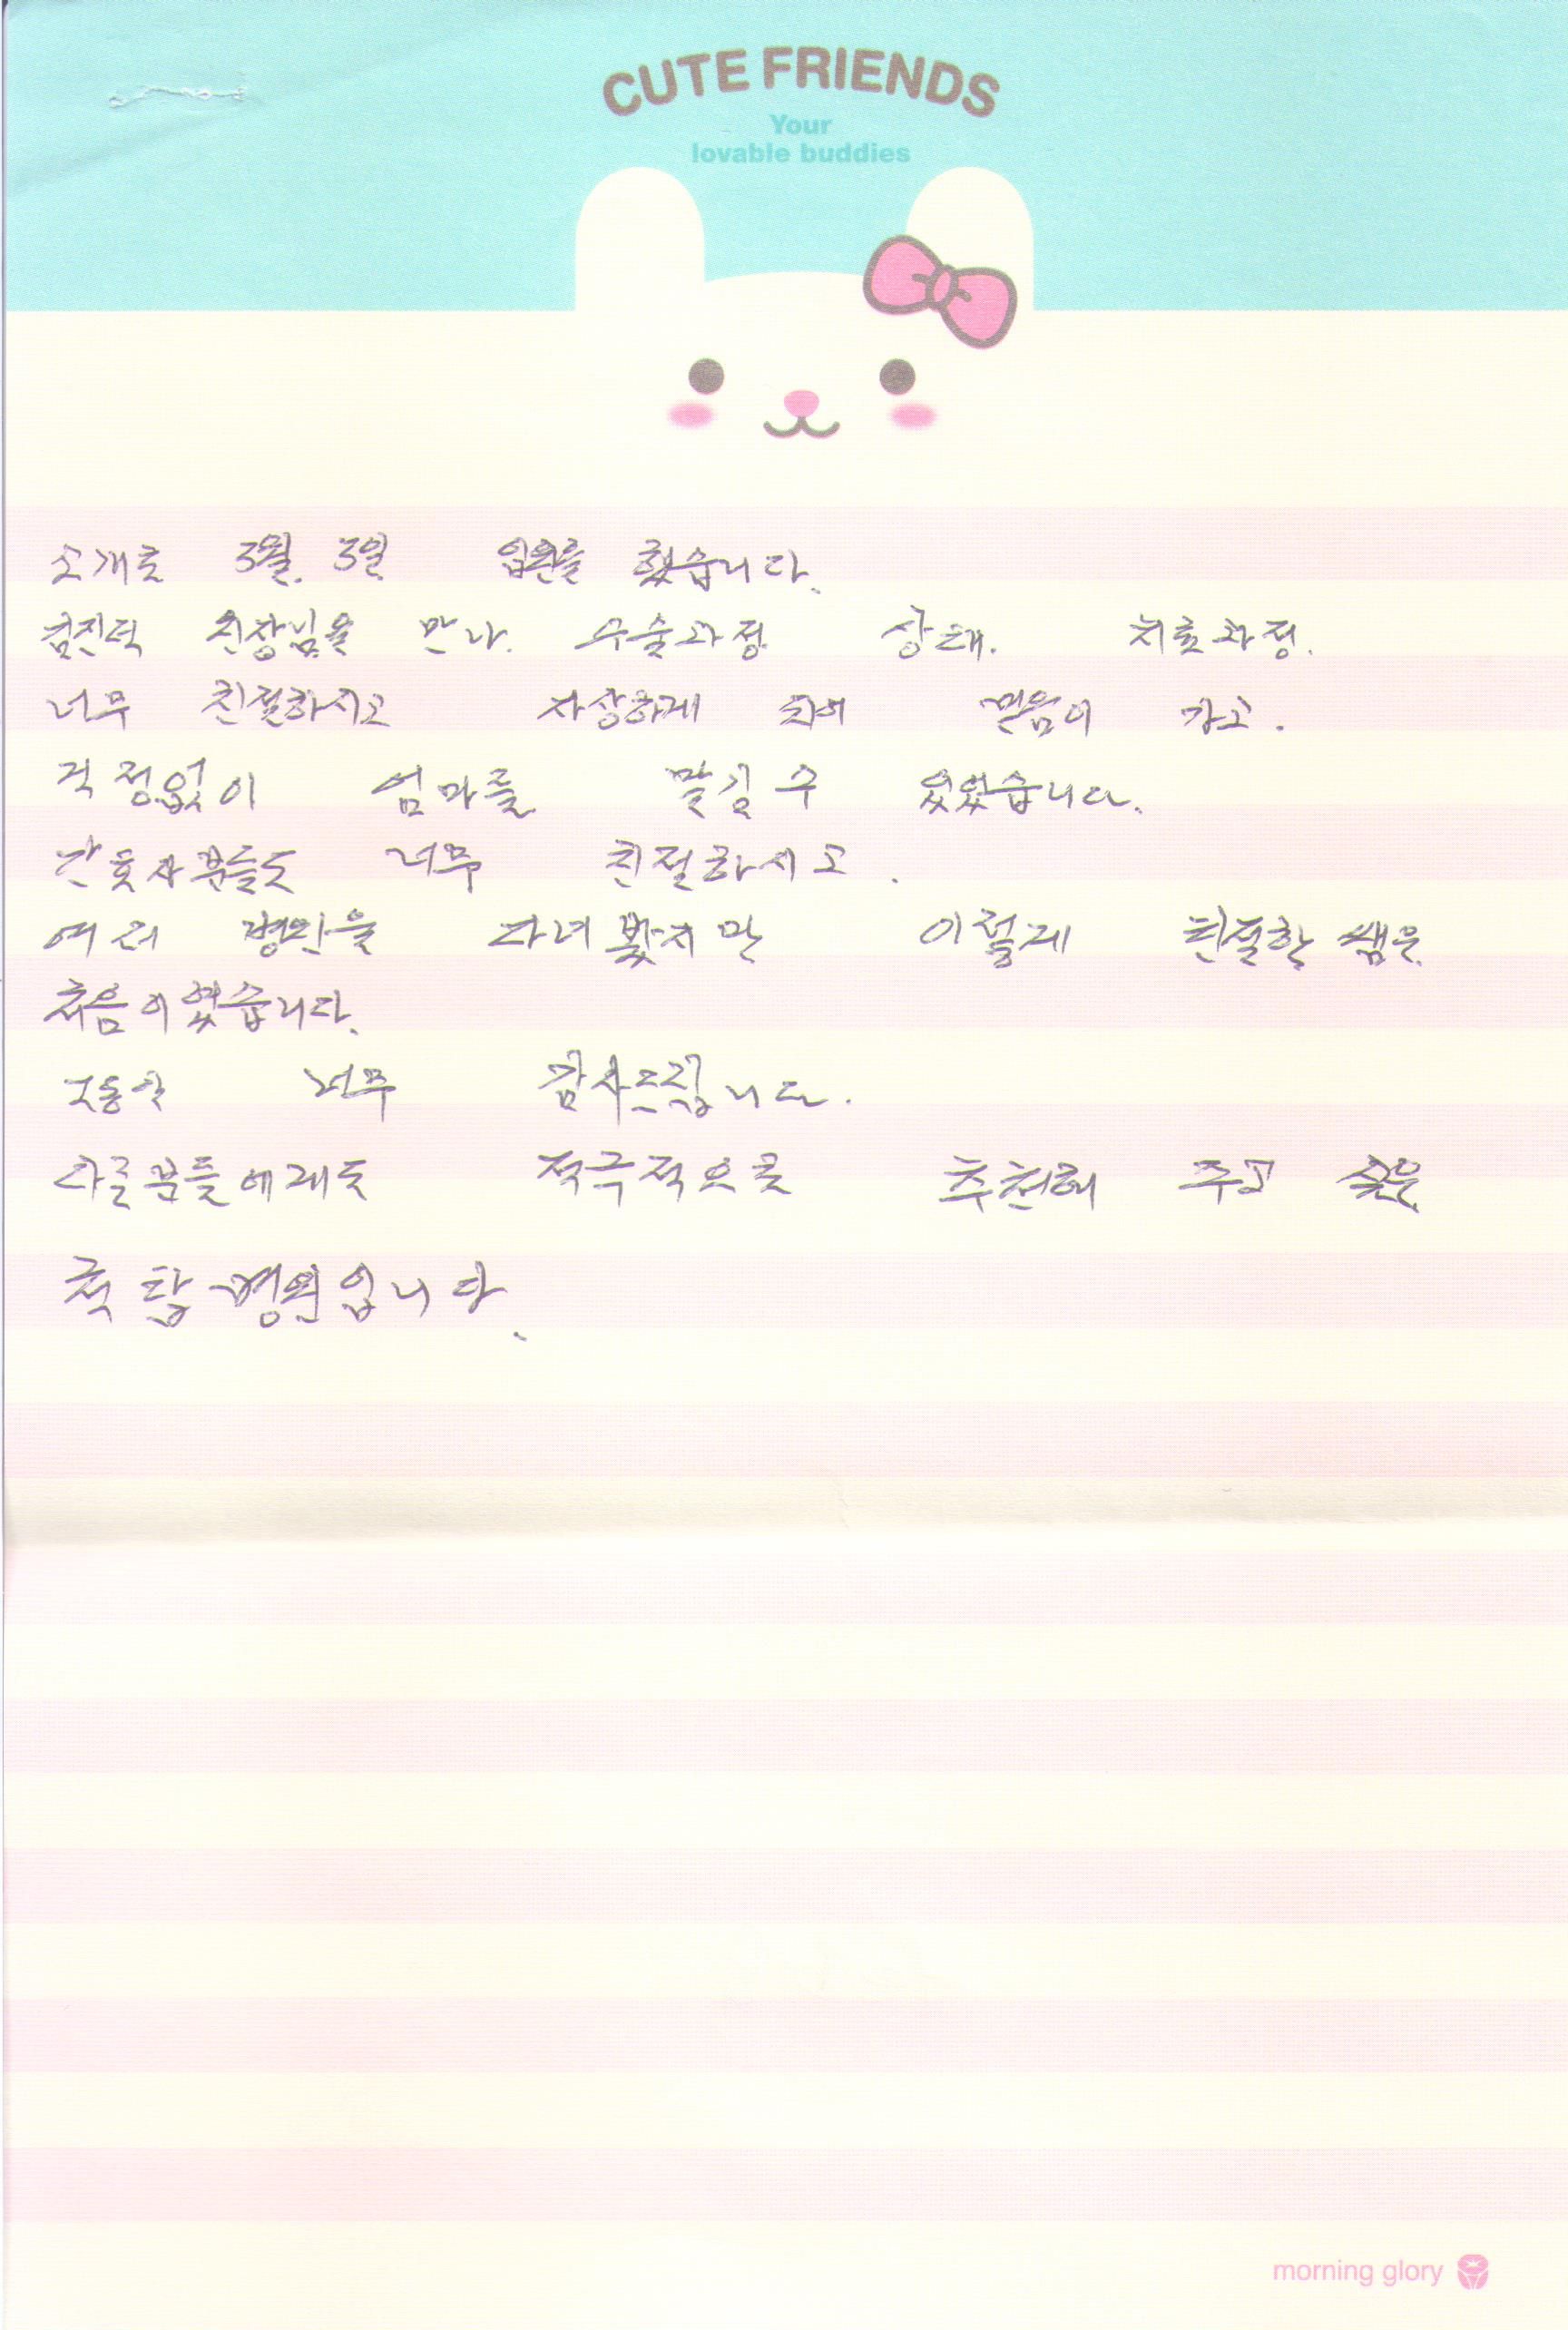 CUTE FRIENDS
Your
lovable buddies
소개로 3월. 3일 입원을 했습니다.
김진덕 원장님을 만나. 수술과정 상태. 치료과정.
너무 친절하시고 자상하게 믿음이 가고.
걱정없이 엄마를 맡길 수 있었습니다.
간호사분들도 너무 친절하시고.
여러 병원을 다녀 봤지만 이렇게 친절한 쌤은
처음이였습니다.
그동안 너무 감사드립니다.
다른분들에게도 적극적으로 추천해 주고 싶은
척탑병원입니다.
morning glory